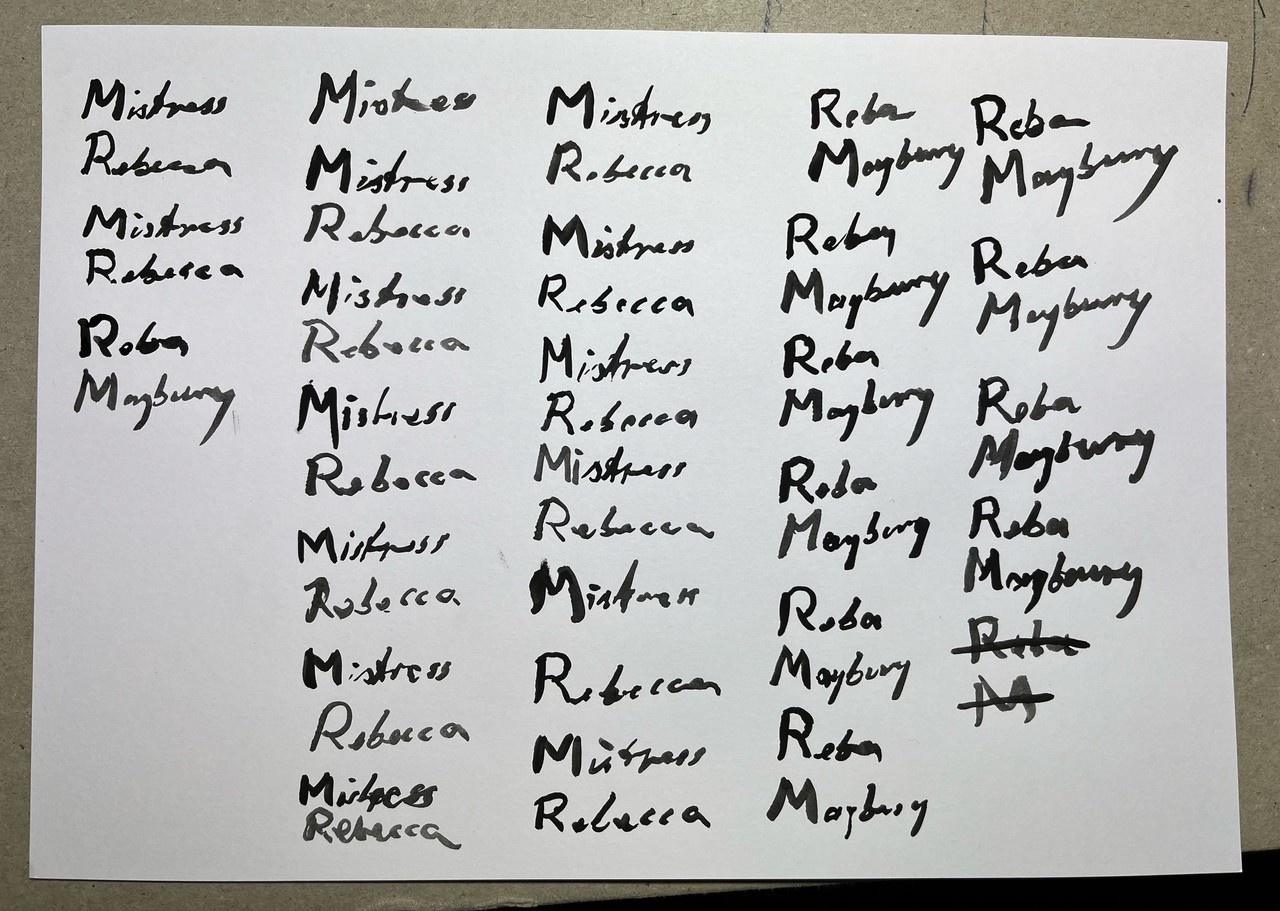 Mistress
Rebecca
Mistress
Rebecca
Reba
Maybury
Mistress
Mistress
Rebecca
Mistress
Rebecca
Mistress
Rebecca
Mistress
Rebecca
Mistress
Rebecca
Mistress
Rebecca
Mistress
Rebecca
Mistress
Rebecca
Mistress
Rebecca
Mistress
Rebecca
Mistress
Rebecca
Mistress
Rebecca
Reba
Maybury
Reba
Maybury
Reba
Maybury
Reba
Maybury
Reba
Maybury
Reba
Maybury
Reba
Maybury
Reba
Maybury
Reba
Maybury
Reba
Maybury
Reba
M